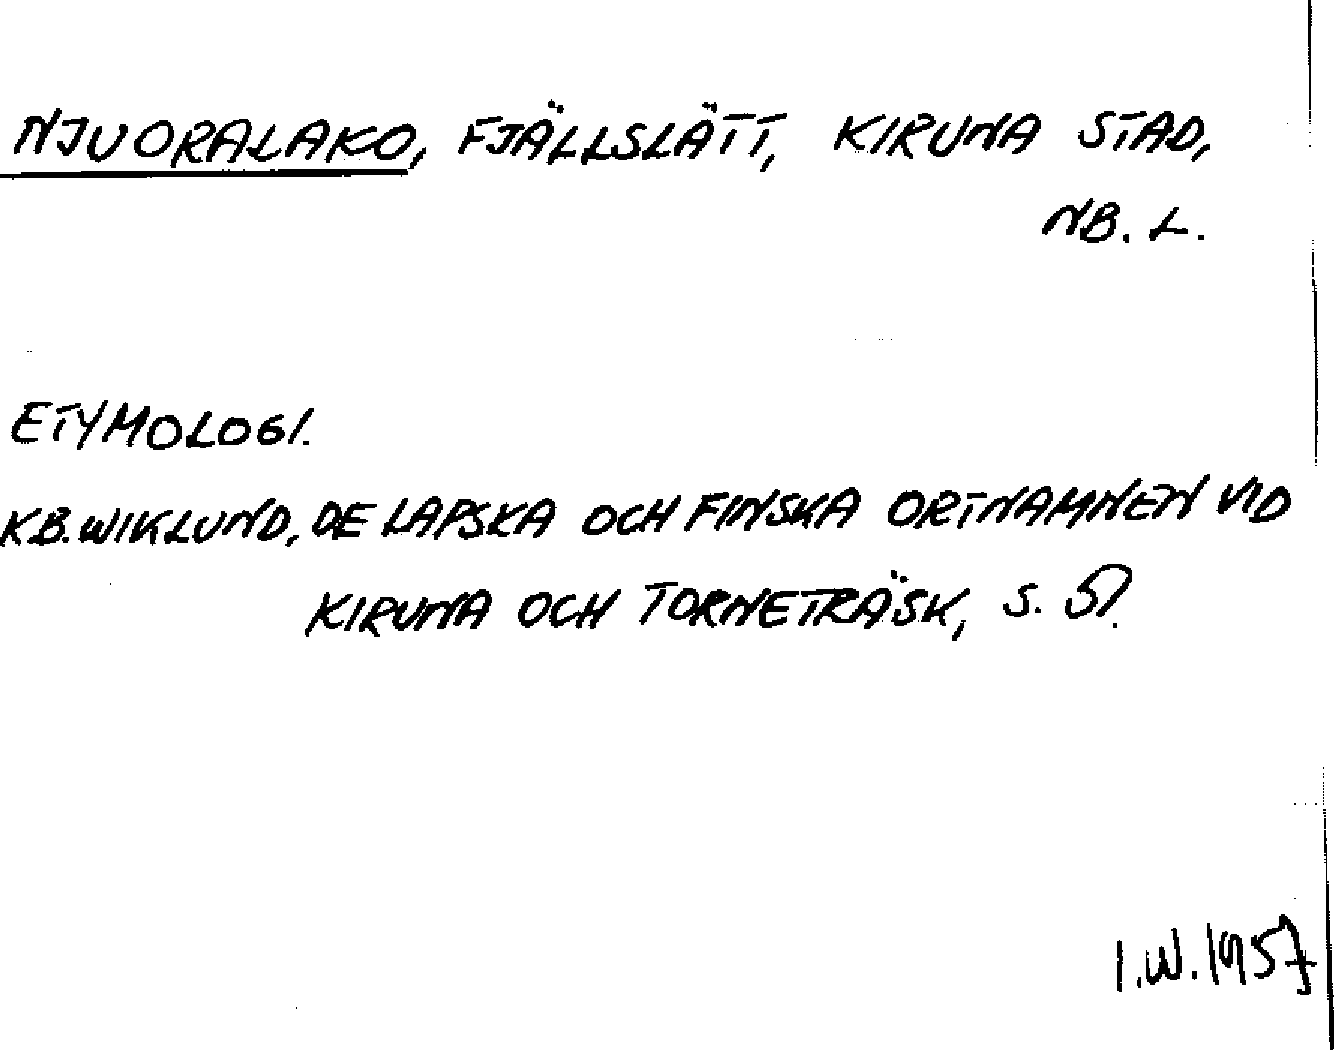 NJUORALAKO, FJÄLLSLÄTT, KIRUNA STAD,
NB. L.
ETYMOLOGI.
K.B. WIKLUND, DE LAPSKA OCH FINSKA ORTNAMNEN VID
KIRUNA OCH TORNETRÄSK, S.
I.W. 1957